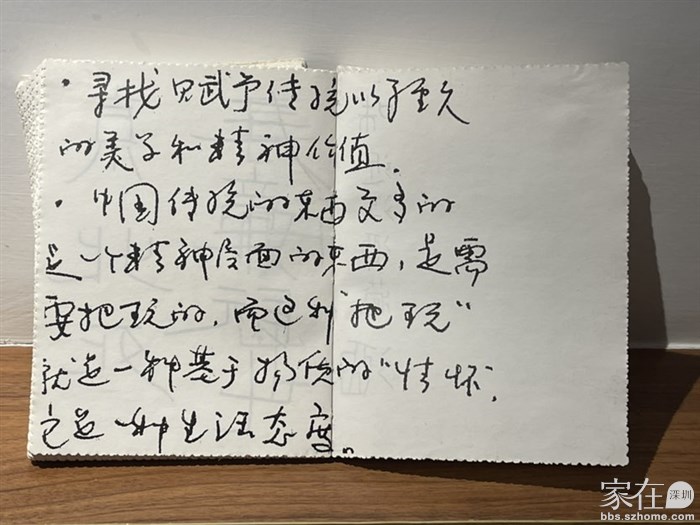 · 寻找见赋予传统以经久
的美学和精神价值.
· 中国传统的东西更多的
是一个精神层面的东西,是需
要把玩的,而这种"把玩"
就是一种基于价的"情怀,
它是一种生活态度"
家在深圳
bbs.szhome.com